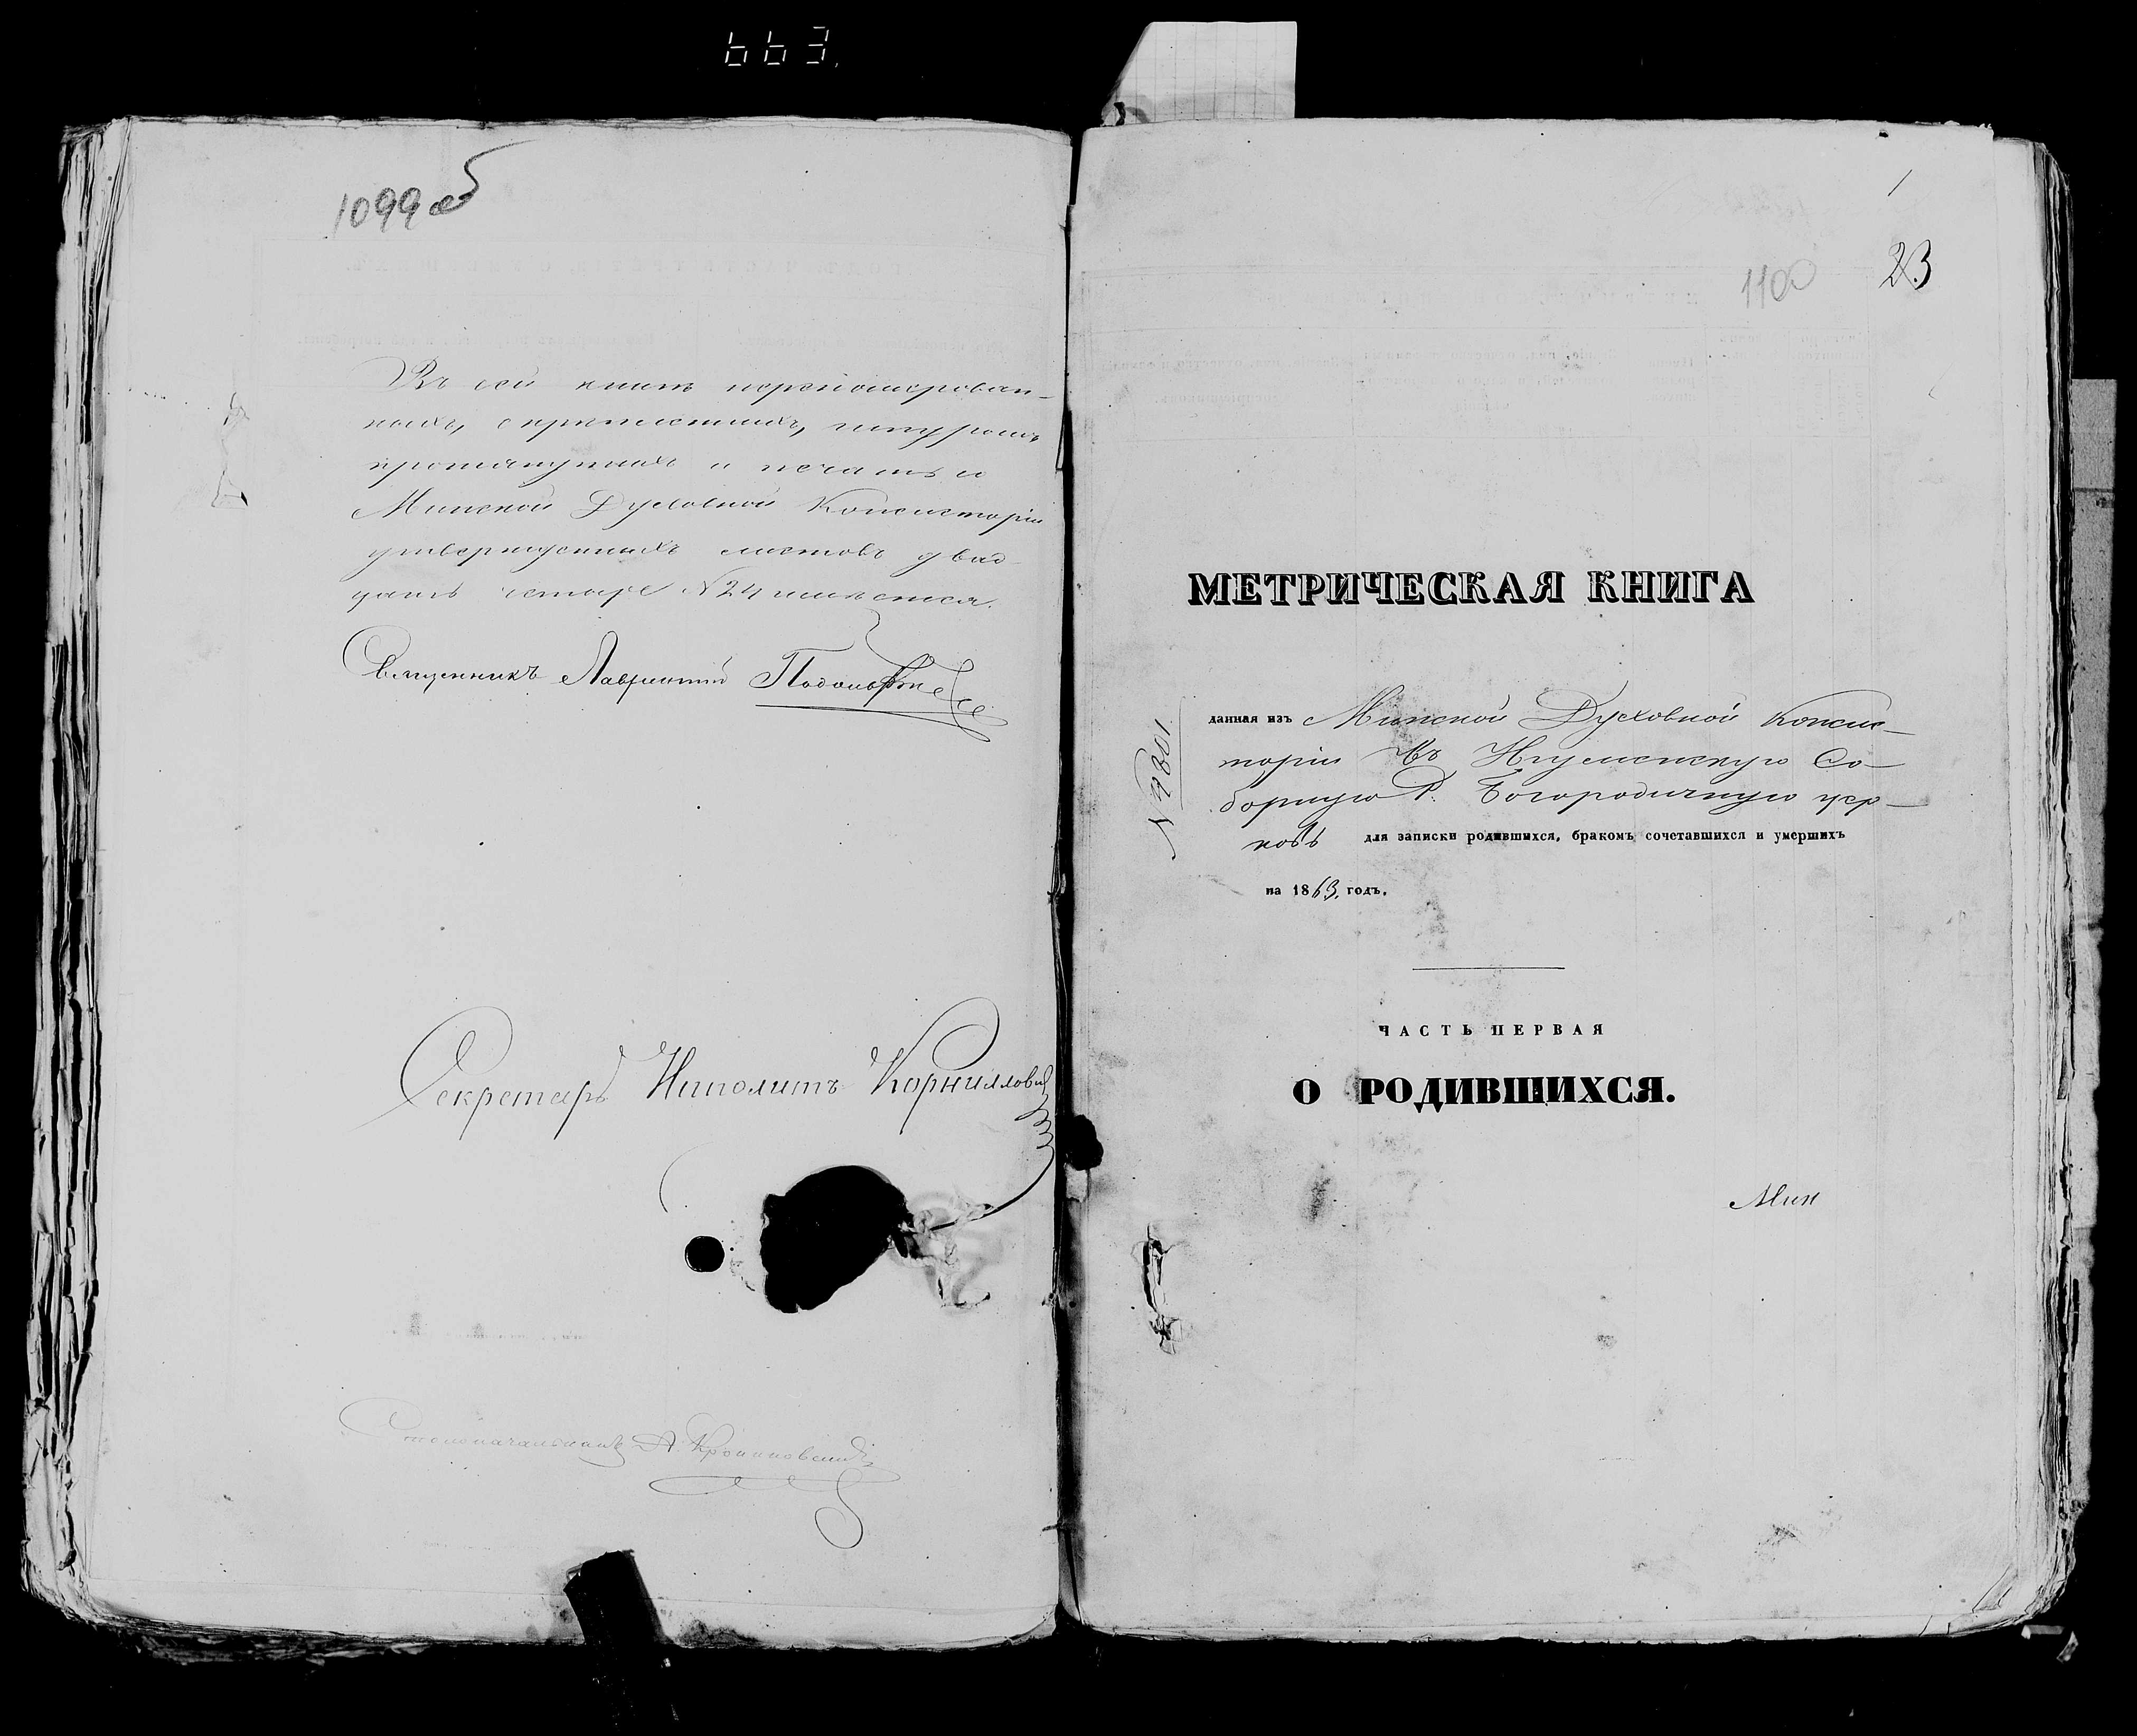 663
1099 об
Въ сей книгѣ перенумерован-
ныхъ, скрѣпленныхъ, шнуромъ
протянутыхъ и печатью
Минской Духовной Консисторіи
утвержденныхъ листовъ двад-
цать четыре №24 имѣется.
Священникъ Лаврентій
Секретарь Иполитъ Корниллови
Столоначальникъ А.
1
23
1100
МЕТРИЧЕСКАЯ КНИГА
№ 9801
данная изъ Минской Духовной Консис-
торіи въ Игуменскую Со-
борную Р. Богородичную цер-
ковь для записки родившихся, бракомъ сочетавшихся и умершихъ
на 1863. годъ.
ЧАСТЬ ПЕРВАЯ
О РОДИВШИХСЯ.
Мин